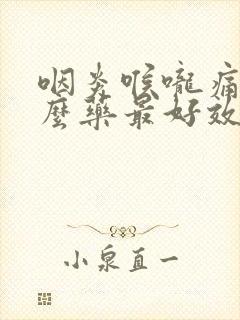 咽炎喉嚨痛
麼藥最好效
小泉直一